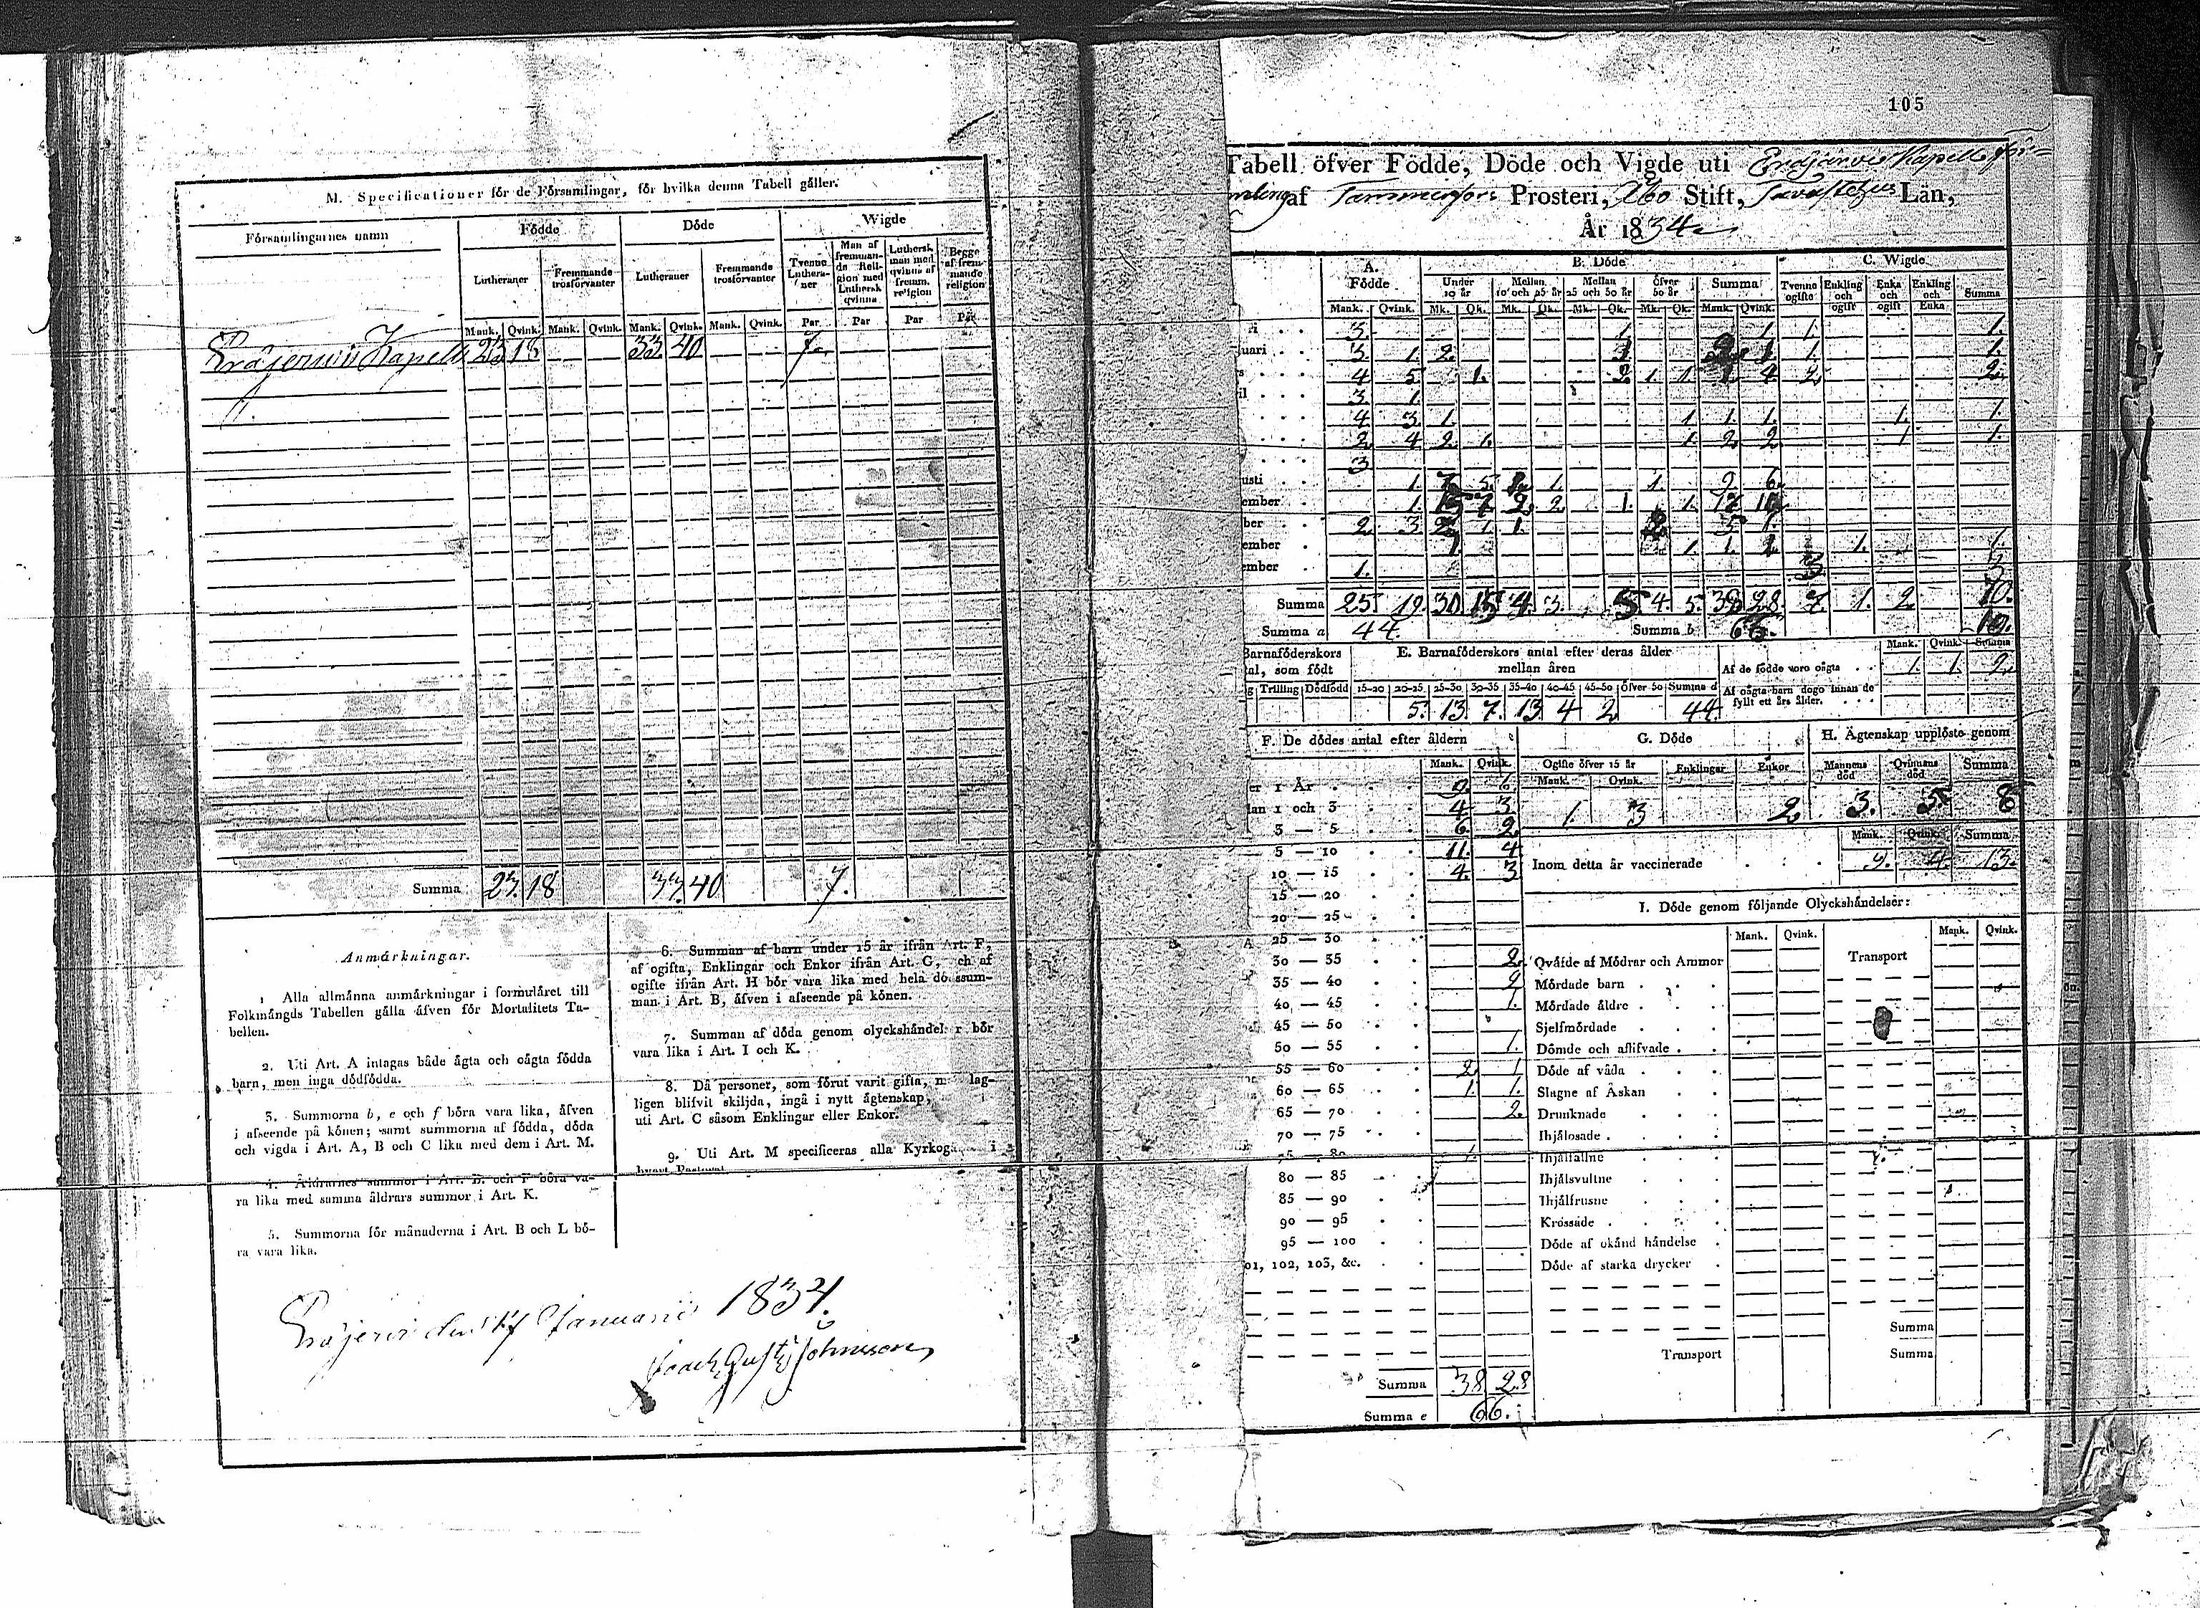 M. Specificationer för de Församlingar, för hvilka denna Tabell gäller.
Församlingarnes namn Födde Döde Wigde
Lutheraner Fremmande trosförvanter Lutheraner Fremmande trosförvanter Tvenne Lutheraner Man af fremmande Religion med Luthersk qvinna Luthersk man med qvinna af fremm. religion Begge af fremmande religion
Mank. Qvink. Mank. Qvink. Mank. Qvink. Mank. Qvink. Par Par Par Par
Kapell 23 18 33 40 7
Summa 23. 18 33. 40 7.
Anmärkningar.
1 Alla allmänna anmärkningar i formuläret till
Folkmängds Tabellen gälla äfven för Mortalitets Ta-
bellen.
2. Uti Art. A intagas både ägta och oägta födda
barn, men inga dödfödda.
3. Summorna b, e och f böra vara lika, äfven
i afseende på könen; samt summorna af födda, döda
och vigda i Art. A, B och C lika med dem i Art. M.
4. Åldrarnes summor i Art. B. och F böra va-
ra lika med samma åldrars summor i Art. K.
5. Summorna för månaderna i Art. B och L bö-
ra vara lika.
6. Summan af barn under 15 år ifrån Art. F,
af ogifta, Enklingar och Enkor ifrån Art. G, ch af
ogifte ifrån Art. H bör vara lika med hela dö ssum-
man i Art. B, äfven i afseende på könen.
7. Summan af döda genom olyckshändel r bör
vara lika i Art. I och K.
8. Då personer, som förut varit gifta, m lag-
ligen blifvit skiljda, ingå i nytt ägtenskap,
uti Art. C såsom Enklingar eller Enkor.
9. Uti Art. M specificeras alla Kyrkogå i
hvart Pastorat
den 17 Januarii 1834.
105
Tabell öfver Födde, Döde och Vigde uti Kapells för=
af Tammerfors Prosteri, Åbo Stift, Tavastehus Län,
År 1834
A. Födde B. Döde C. Wigde
Under 10 år Mellan 10 och 25 år Mellan 25 och 50 år Öfver 50 år Summa Tvenne ogifte Enkling och ogift Enka och ogift Enkling och Enka Summa
Mank. Qvink. Mk. Qk. Mk. Qk. Mk. Qk. Mk. Qk. Mank. Qvink.
ri 3. 1 1. 1. 1.
uari 3 1. 2. 1 1. 1.
s 4 5. 1. 2. 1. 1. 4 2. 2.
il 3 1.
4 3 1. 1. 1. 1. 1. 1.
2 4 2 1. 1. 2 2 1 1.
3
usti 1. 7 5 2 1. 1. 9 6
ember 1. 7 2 2 1. 1. 17
ber 2. 3 2 1 1. 2 5 1
ember 1 1. 1. 2 1. 1.
ember 1. 3 3
Summa 25. 19. 30. 15 4. 3 5 4. 5. 38 28. 7. 1. 2. 10.
Summa a 44. Summa b 66. 10.
Barnaföderskors
tal, som födt
g Trilling Dödfödd
E. Barnaföderskors antal efter deras ålder
mellan åren
15-20 20-25 25-30 30-35 35-40 40-45 45-50 Öfver 50 Summa d
5. 13. 7. 13. 4 2 44
Mank. Qvink. Summa
Af de födde voro oägta 1. 1. 2
Af oägta barn dogo innan de
fyllt ett års ålder.
F. De dödes antal efter åldern
Mank. Qvink.
er 1 År 9 6
lan 1 och 3 4 3
3 — 5 6 2
5 — 10 11. 4
10 — 15 4. 3
15 — 20
20 — 25
25 — 30
30 — 35 2.
35 — 40 2
40 — 45 1.
45 — 50
50 — 55 1.
55 — 60 2 1
60 — 65 1. 1.
65 — 70 2.
70 — 75
75 — 80 1.
80 — 85
85 — 90
90 — 95
95 — 100
01, 102, 103, &c.
Summa 38 28
Summa e 66.
G. Döde
Ogifte öfver 15 år Enklingar Enkor
Mank. Qvink.
1. 3 2
H. Ägtenskap upplöste genom
Mannens död Qvinnans död Summa
3. 5 8
Mank. Qvink. Summa
Inom detta år vaccinerade 9. 4. 13.
I. Döde genom följande Olyckshändelser:
Mank. Qvink. Mank. Qvink.
Qväfde af Mödrar och Ammor Transport
Mördade barn
Mördade äldre
Sjelfmördade
Dömde och aflifvade
Döde af våda
Slagne af Åskan
Drunknade
Ihjälosade
Ihjälfallne
Ihjälsvultne
Ihjälfrusne
Krossade
Döde af okänd händelse
Döde af starka drycker
Summa
Transport Summa